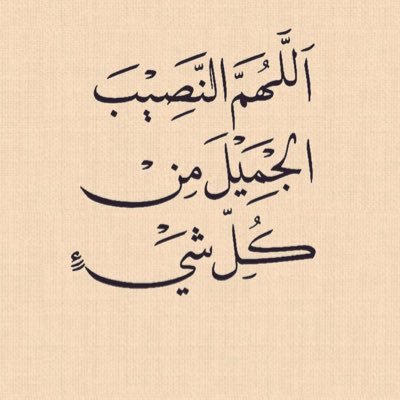 اَللَّهُمَّ النَّصِيْبَ
الجَمِيْلَ مِنْ
كُلِّ شَيْءٍ